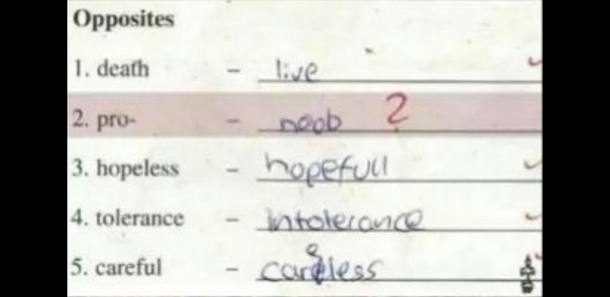 Opposites
1. death - live
2. pro- - noob ?
3. hopeless - hopefull
4. tolerance - Intolerance
5. careful - careless